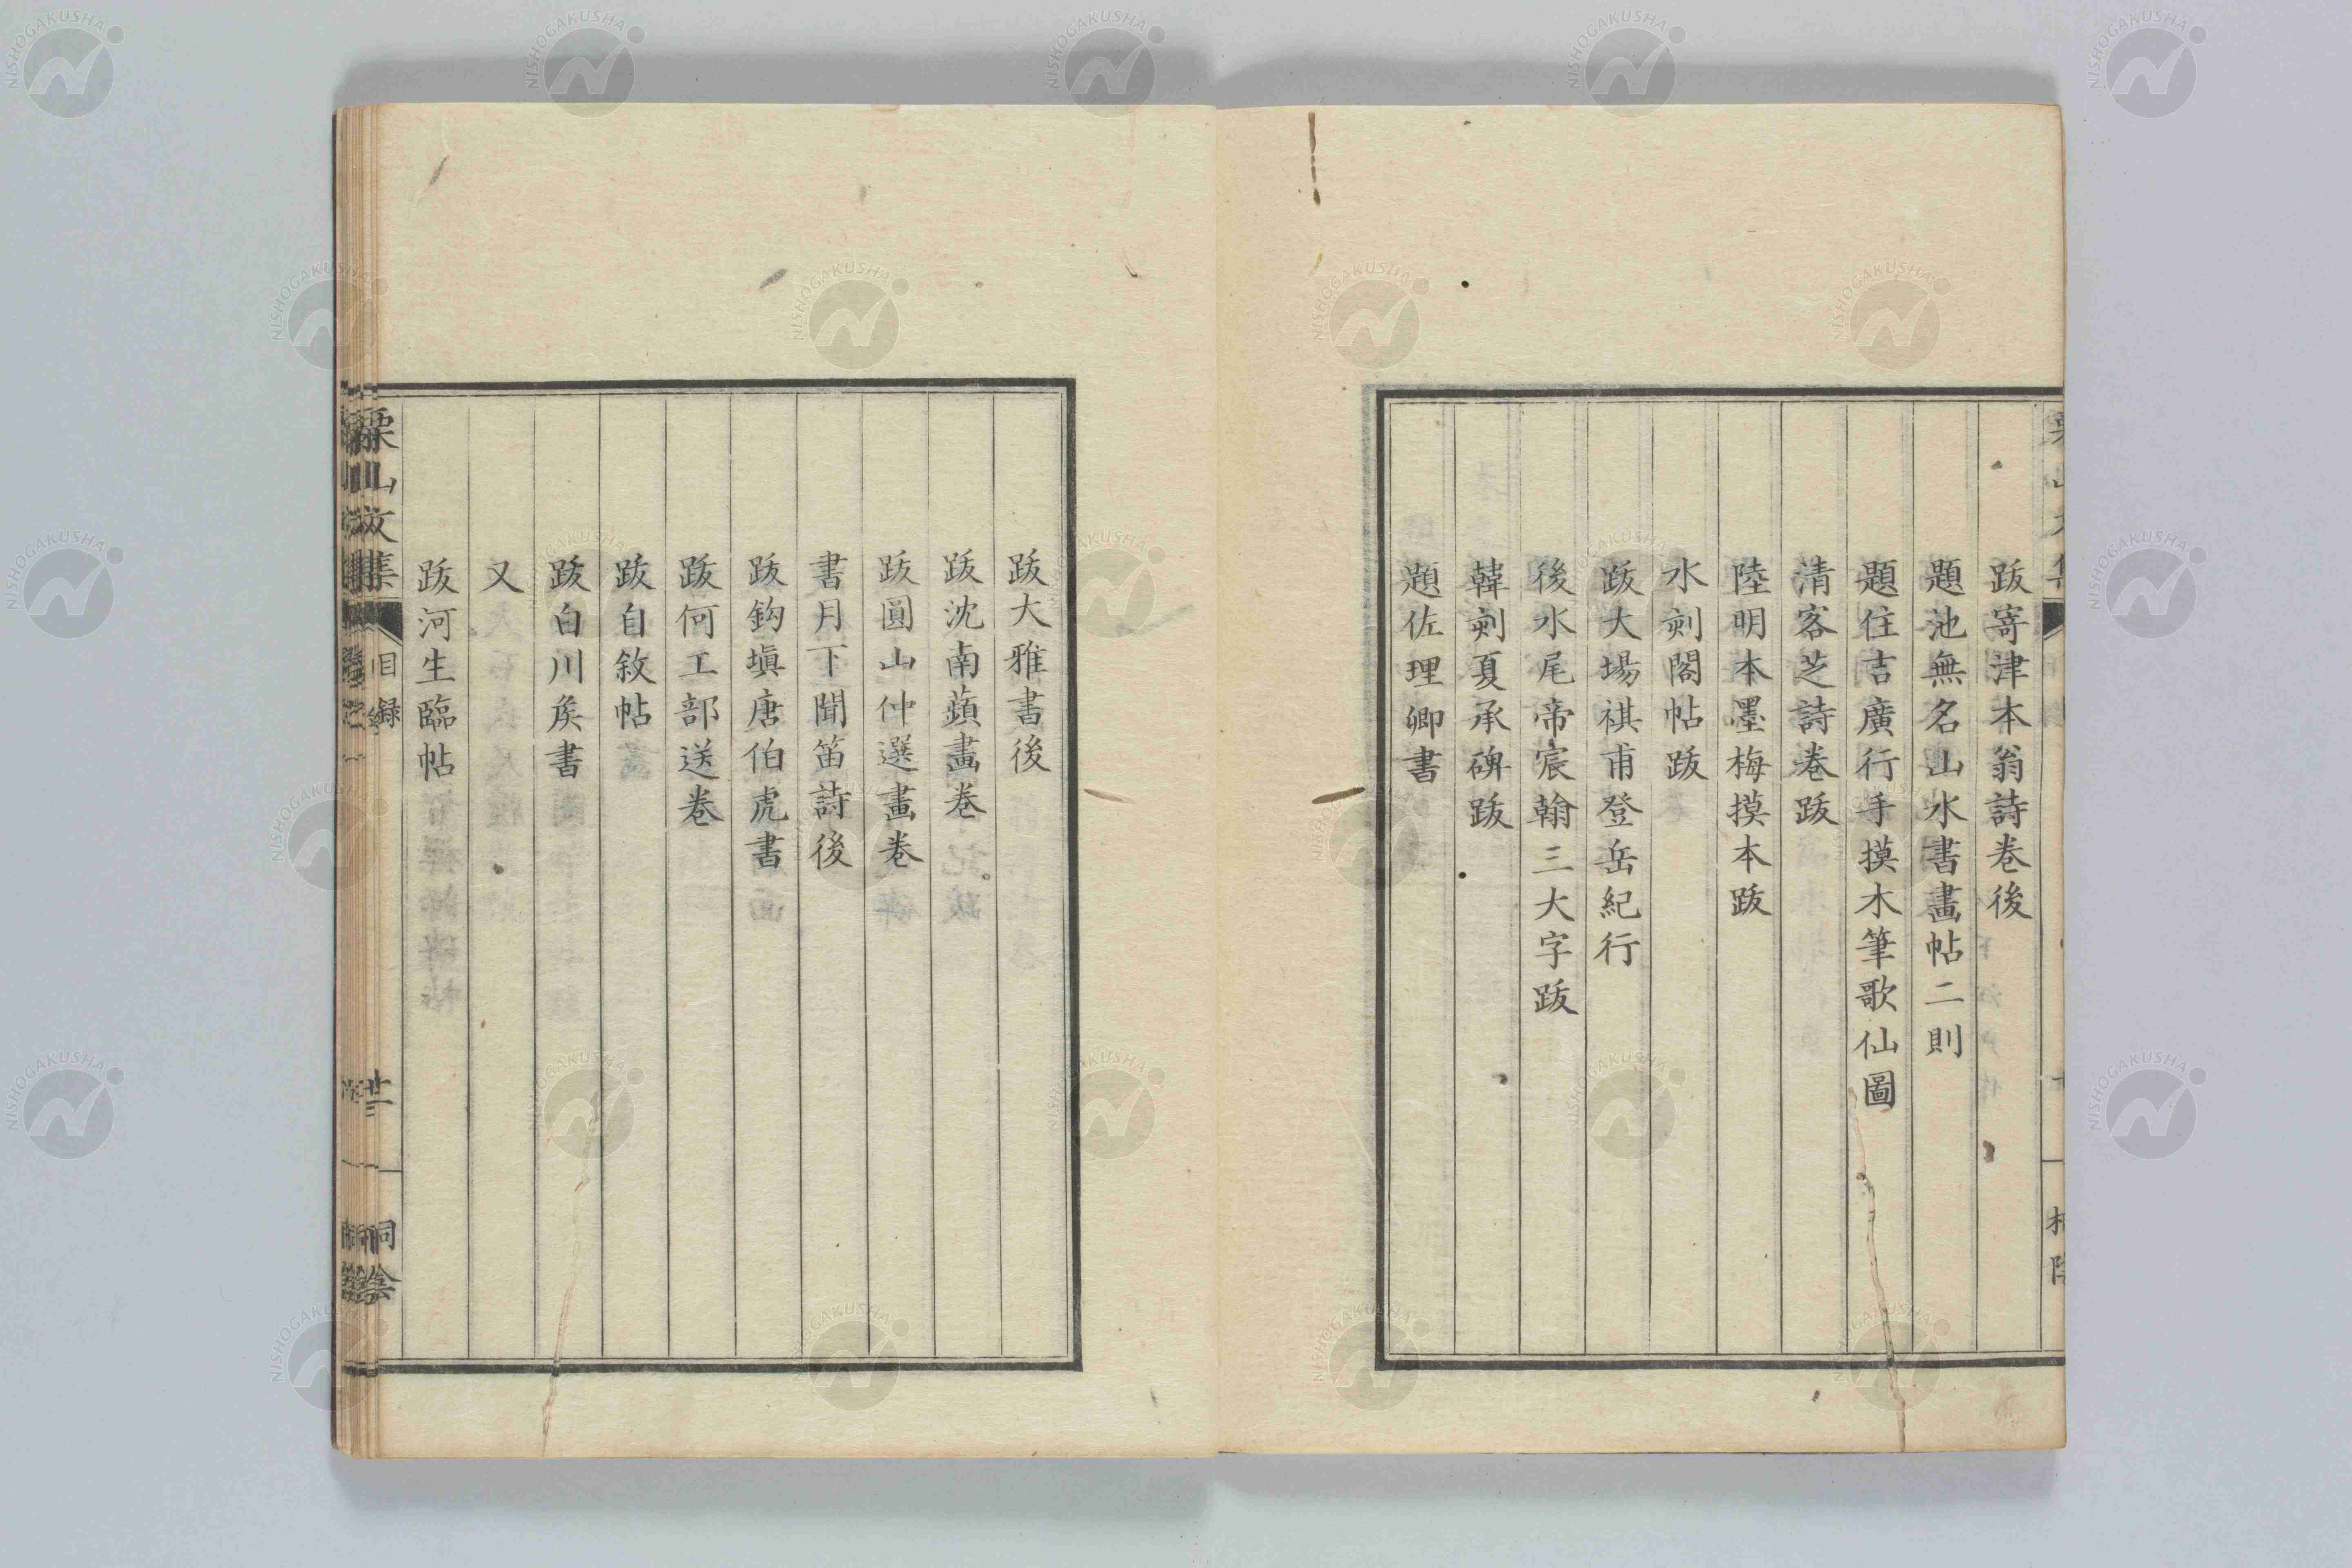 跋寄津本翁詩卷後
題池無名山水書畫帖二則
題住吉廣行手摸木筆歌仙圖
清客芝詩卷跋
陸明本墨梅摸本跋
水刻閣帖跋
跋大場祺甫登岳紀行
後水尾帝宸翰三大字跋
韓刻夏承碑跋
題佐理卿書
跋大雅書後
跋沈南蘋畫卷
跋圓山仲選畫卷
書月下聞笛詩後
跋鈎塡唐伯虎書
跋何工部送卷
跋自敘帖
跋白川矦書
又
跋河生臨帖
栗山文集
目錄
NISHOGAKUSHA